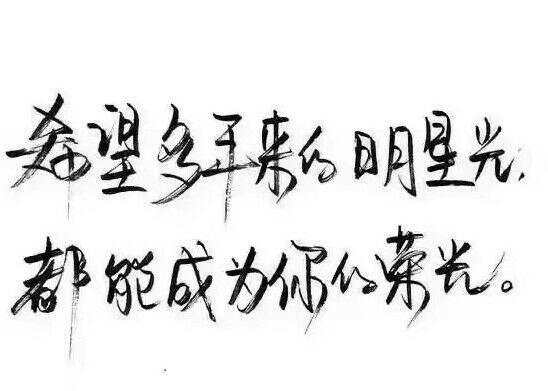 希望多年来的日月星光,
都能成为你的荣光。